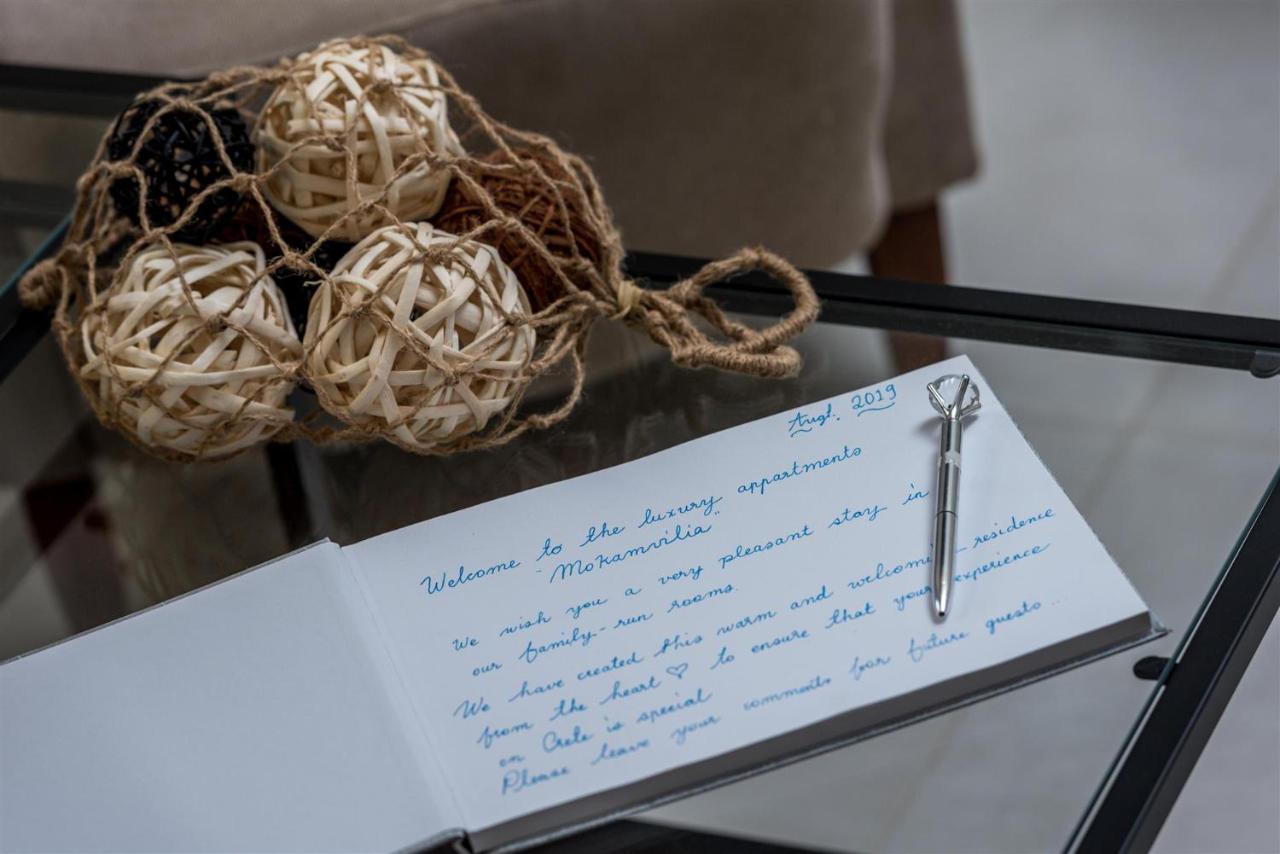 Augt. 2019
Welcome to the luxury appartments
"Mokamvilia"
We wish you a very pleasant stay in
our family-run rooms.
We have created this warm and welcomi - residence
from the heart ♡ to ensure that your experience
on Crete is special
Please leave your comments for future guests ...